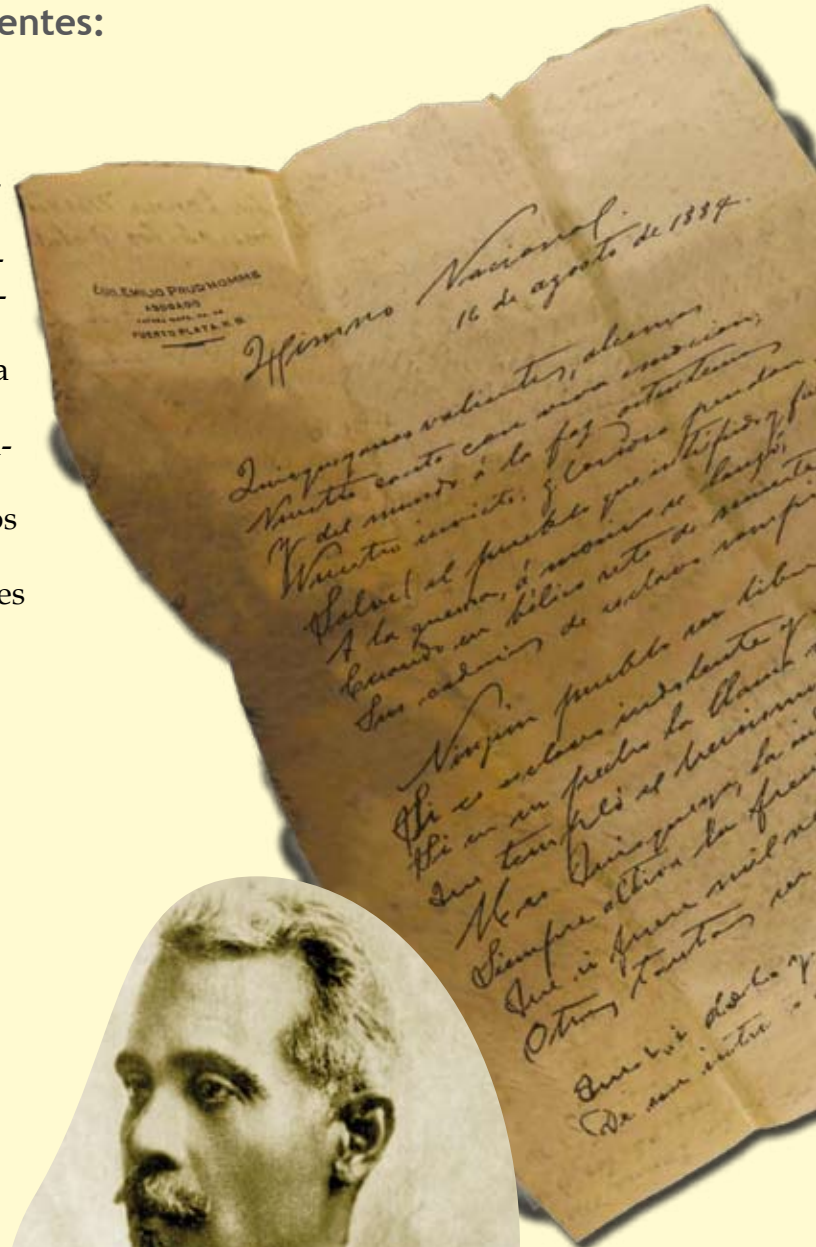 entes:
-
-
-
a
-
os
es
EMILIO PRUD'HOMME
ABOGADO
PUERTO PLATA, R. D.
Himno Nacional.
16 de agosto de 1884.
Quisqueyanos valientes, alcemos
Nuestro canto con viva emoción,
Y del mundo á la faz ostentemos
Nuestro invicto, glorioso pendon
Salve! el pueblo que intrépido y fu
A la guerra, á morir se lanzó,
Cuando en bélico reto de muerte
Sus cadenas de esclavo rompi
Ningún pueblo ser libre
Si es esclavo indolente y
Si en su pecho la llama n
Que templó el heroismo
Mas Quisqueya, la in
Siempre altiva la fren
Que si fuere mil ve
Otras tantas ser
Que si dolo y
De un intru